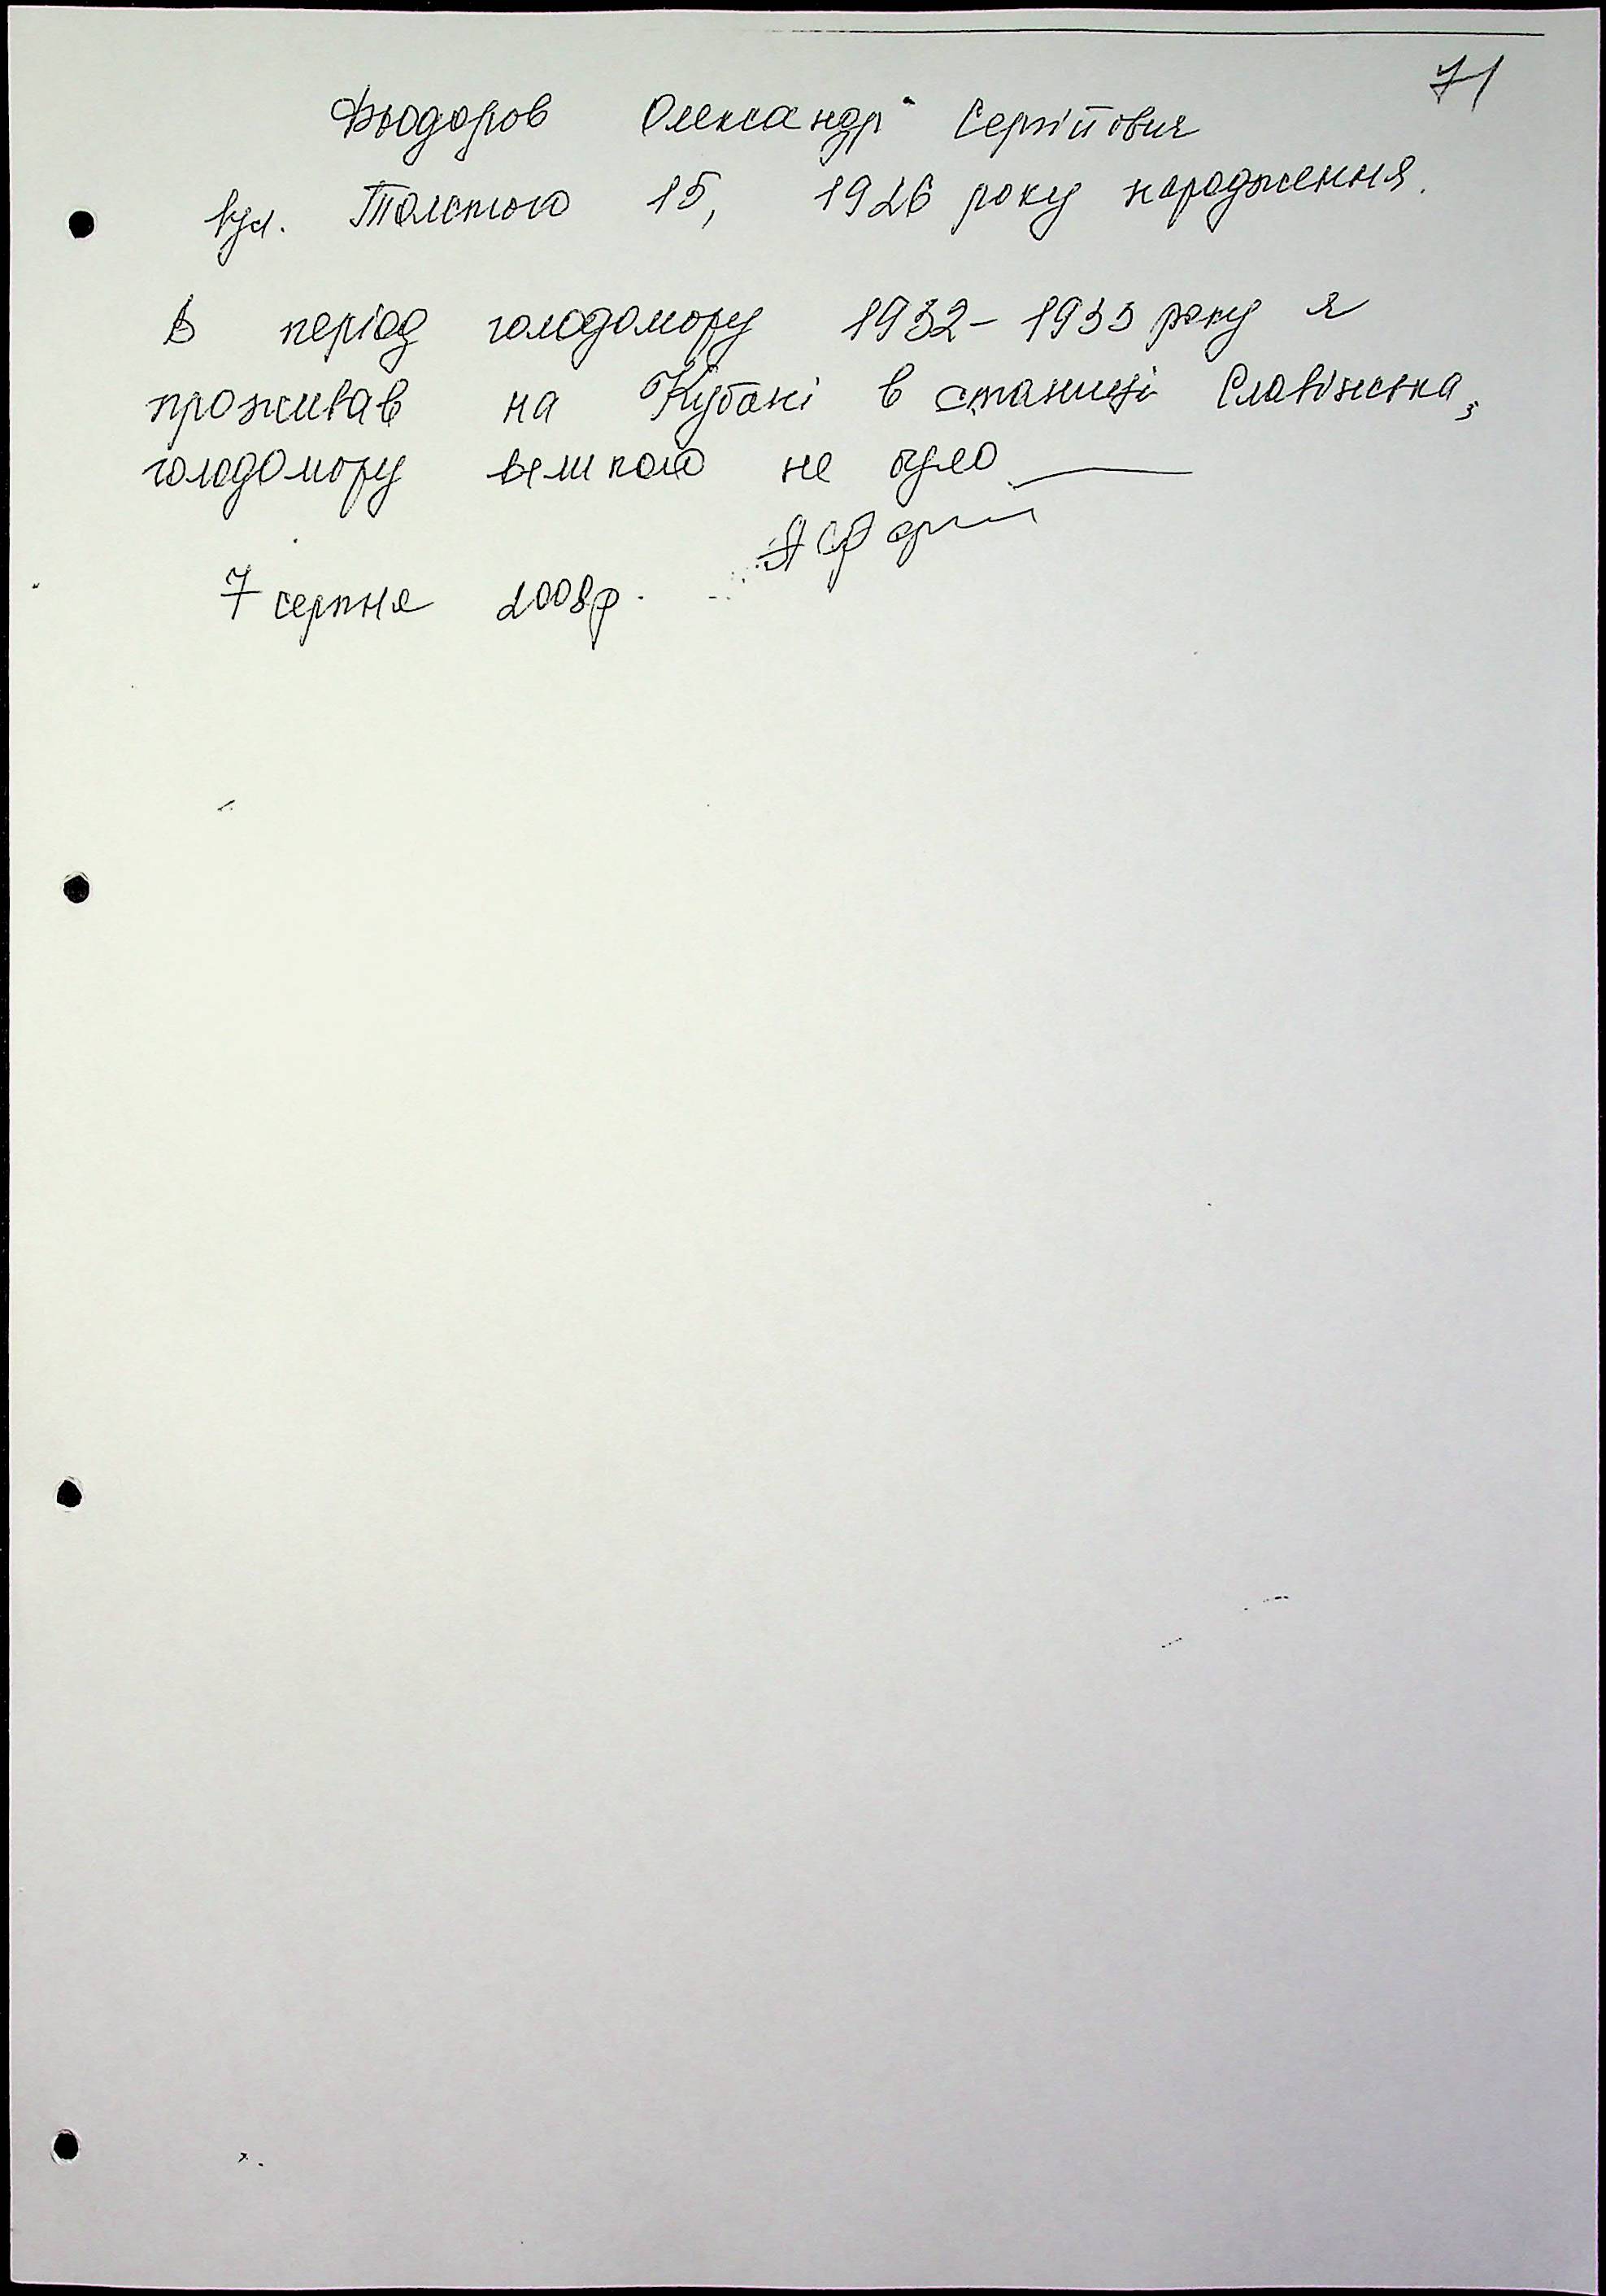 71
Фьодоров Олександр Сергійович
вул. Толстого 15, 1926 року народження.
В період голодомору 1932-1933 року я
проживав на Кубані в станиці Славінська,
голодомору великого не було
7 серпня 2008р.